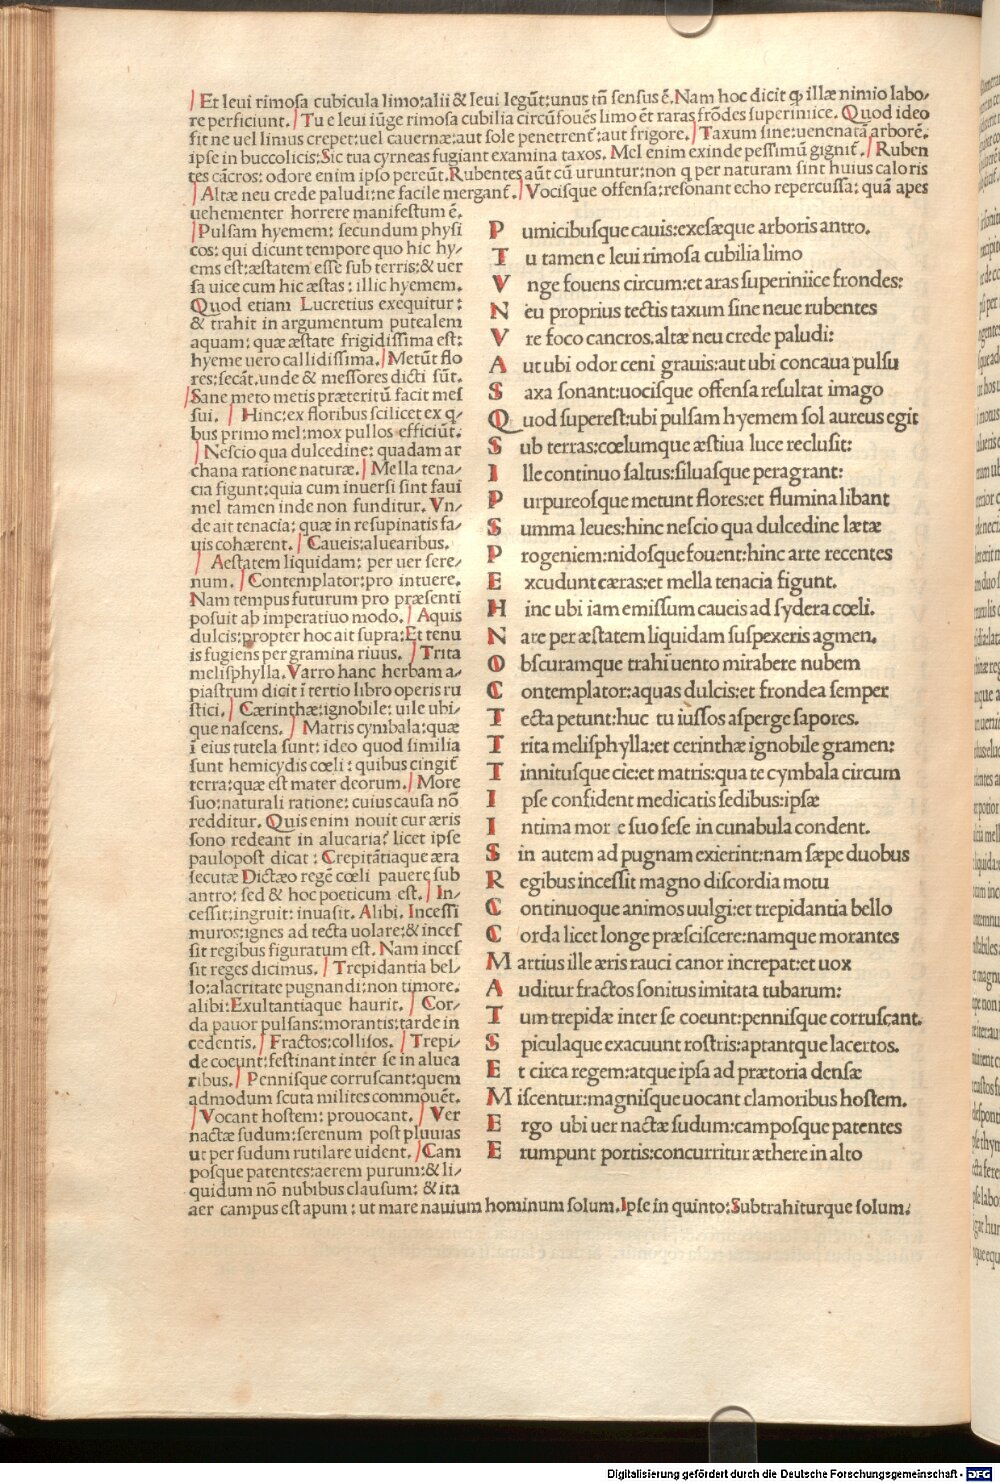 Et leui rimoſa cubicula limo:alii & leui legūt:unus tñ ſenſus ē.Nam hoc dicit ꝙ illæ nimio labo/
re perficiunt. Tu e leui iūge rimoſa cubilia circūfouēs limo et raras frōdes ſuperiniice. Quod ideo
fit ne uel limus crepet:uel cauernæ:aut ſole penetrent̄:aut frigore. Taxum ſine:uenenatā arborē.
ipſe in buccolicis:Sic tua cyrneas fugiant examina taxos. Mel enim exinde peſſimū gignit̄. Ruben
tes cācros: odore enim ipſo pereūt.Rubentes aūt cū uruntur:non q per naturam ſint huius caloris
Altæ neu crede paludi:ne facile mergant̄. Vociſque offenſa:reſonant echo repercuſſa: quā apes
uehementer horrere manifeſtum ē.
Pulſam hyemem: ſecundum phyſi
cos: qui dicunt tempore quo hic hy/
ems eſt:æſtatem eſſe ſub terris:& uer
ſa uice cum hic æſtas: illic hyemem.
Quod etiam Lucretius exequitur:
& trahit in argumentum putealem
aquam: quæ æſtate frigidiſſima eſt:
hyeme uero callidiſſima. Metūt flo
res:ſecāt.unde & meſſores dicti ſūt.
Sane meto metis præteritū facit meſ
ſui. Hinc:ex floribus ſcilicet ex q̄/
bus primo mel:mox pullos efficiūt.
Neſcio qua dulcedine: quadam ar
chana ratione naturæ. Mella tena/
cia figunt:quia cum inuerſi ſint faui
mel tamen inde non funditur. Vn/
de ait tenacia: quæ in reſupinatis fa/
uis cohærent. Caueis:aluearibus.
Aeſtatem liquidam: per uer ſere/
num. Contemplator:pro intuere.
Nam tempus futurum pro præſenti
poſuit ab imperatiuo modo. Aquis
dulcis:propter hoc ait ſupra:Et tenu
is fugiens per gramina riuus. Trita
meliſphylla.Varro hanc herbam a/
piaſtrum dicit ī tertio libro operis ru
ſtici. Cærinthæ:ignobile: uile ubi/
que naſcens. Matris cymbala:quæ
ī eius tutela ſunt: ideo quod ſimilia
ſunt hemicydis cœli: quibus cingit̄
terra:quæ eſt mater deorum. More
ſuo:naturali ratione: cuius cauſa nō
redditur. Quis enim nouit cur æris
ſono redeant in alucaria? licet ipſe
paulopoſt dicat: Crepitātiaque æra
ſecutæ Dictæo regē cœli pauere ſub
antro: ſed & hoc poeticum eſt. In/
ceſſit:ingruit: inuaſit. Alibi. Inceſſi
muros:ignes ad tecta uolare:& inceſ
ſit regibus figuratum eſt. Nam inceſ
ſit reges dicimus. Trepidantia bel/
lo:alacritate pugnandi:non timore.
alibi:Exultantiaque haurit. Cor/
da pauor pulſans:morantis:tarde in
cedentis. Fractos:colliſos. Trepi/
de coeunt:feſtinant inter ſe in aluca
ribus. Penniſque corruſcant:quem
admodum ſcuta milites commouēt.
Vocant hoſtem: prouocant. Ver
nactæ ſudum:ſerenum poſt pluuias
ut per ſudum rutilare uident. Cam
poſque patentes:aerem purum:& li/
quidum nō nubibus clauſum: & ita
aer campus eſt apum: ut mare nauium hominum ſolum.Ipſe in quinto:Subtrahiturque ſolum:
P umicibuſque cauis:exeſæque arboris antro.
T u tamen e leui rimoſa cubilia limo
V nge fouens circum:et aras ſuperiniice frondes:
N eu proprius tectis taxum ſine neue rubentes
V re foco cancros.altæ neu crede paludi:
A ut ubi odor ceni grauis:aut ubi concaua pulſu
S axa ſonant:uociſque offenſa reſultat imago
Q uod ſupereſt:ubi pulſam hyemem ſol aureus egit
S ub terras:cœlumque æſtiua luce recluſit:
I lle continuo ſaltus:ſiluaſque peragrant:
P urpureoſque metunt flores:et flumina libant
S umma leues:hinc neſcio qua dulcedine lætæ
P rogeniem:nidoſque fouent:hinc arte recentes
E xcudunt cæras:et mella tenacia figunt.
H inc ubi iam emiſſum caueis ad ſydera cœli.
N are per æſtatem liquidam ſuſpexeris agmen.
O bſcuramque trahi uento mirabere nubem
C ontemplator:aquas dulcis:et frondea ſemper
T ecta petunt:huc tu iuſſos aſperge ſapores.
T rita meliſphylla:et cerinthæ ignobile gramen:
T innituſque cie:et matris:qua te cymbala circum
I pſe confident medicatis ſedibus:ipſæ
I ntima mor e ſuo ſeſe in cunabula condent.
S in autem ad pugnam exierint:nam ſæpe duobus
R egibus inceſſit magno diſcordia motu
C ontinuoque animos uulgi:et trepidantia bello
C orda licet longe præſciſcere:namque morantes
M artius ille æris rauci canor increpat:et uox
A uditur fractos ſonitus imitata tubarum:
T um trepidæ inter ſe coeunt:penniſque corruſcant.
S piculaque exacuunt roſtris:aptantque lacertos.
E t circa regem:atque ipſa ad prætoria denſæ
M iſcentur:magniſque uocant clamoribus hoſtem.
E rgo ubi uer nactæ ſudum:campoſque patentes
E rumpunt portis:concurritur æthere in alto
Digitalisierung gefördert durch die Deutsche Forschungsgemeinschaft - DFG